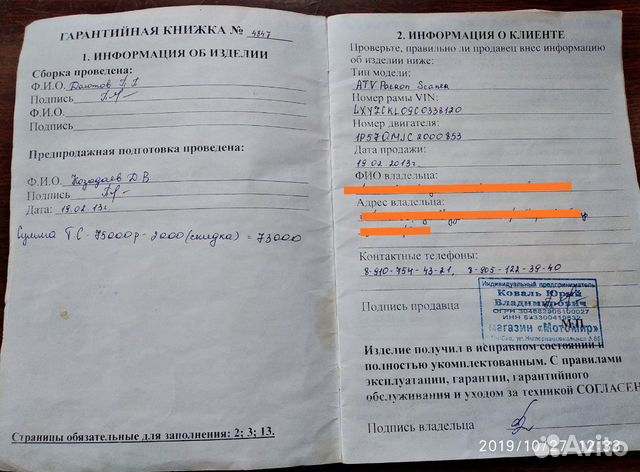 ГАРАНТИЙНАЯ КНИЖКА № 4847
1. ИНФОРМАЦИЯ ОБ ИЗДЕЛИИ
Сборка проведена:
Ф.И.О.
Подпись
Ф.И.О.
Подпись
Предпродажная подготовка проведена:
Ф.И.О. Козадаев Д В
Подпись
Дата: 19.02 13г.
Сумма Т.С - 75000р - 2000 (скидка) = 73000
Страницы обязательные для заполнения: 2; 3; 13.
2. ИНФОРМАЦИЯ О КЛИЕНТЕ
Проверьте, правильно ли продавец внес информацию
об изделии ниже:
Тип модели:
ATV
Номер рамы VIN:
LXYZCKL09C0338120
Номер двигателя:
1P57QMJC2000853
Дата продажи:
19.02 2013г.
ФИО владельца:
Адрес владельца:
Контактные телефоны:
8-910-754-43-21, 8-905-122-39-40
Индивидуальный предприниматель
Коваль Юрий
Владимирович
ОГРН
ИНН
магазин «Мотомир»
Подпись продавца
М.П.
Изделие получил в исправном состоянии и
полностью укомплектованным. С правилами
эксплуатации, гарантии, гарантийного
обслуживания и ухода за техникой СОГЛАСЕН
Подпись владельца
2019/10/27 12:33
Avito